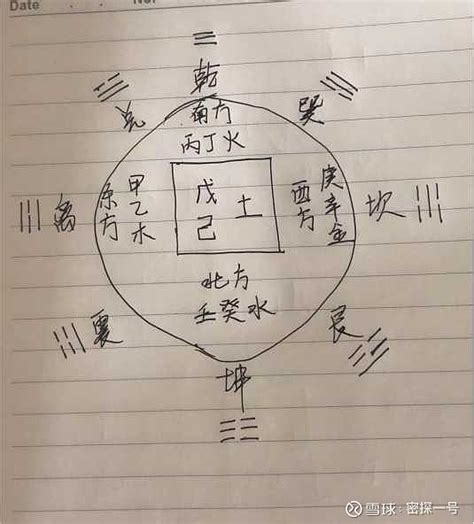 Date
No.
乾
兑
巽
南方
丙丁火
离
东方
甲乙木
戊
己
土
西方
庚辛金
坎
北方
壬癸水
震
艮
坤
雪球:密探一号